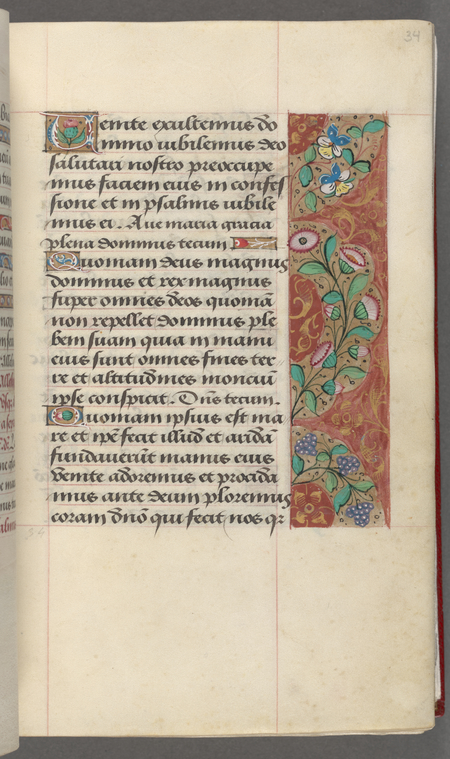 34
Venite exultemus dō
mino iubilemus deo
salutari nostro preoccupe
mus faciem eius in confes
sione et in psalmis iubile
mus ei. Aue maria gracia
plena dominus tecum
Quoniam deus magnus
dominus et rex magnus
super omnes deos quoniā
non repellet dominus ple
bem suam quia in manu
eius sunt omnes fines ter
re et altitudines monciū
ipse conspicit. Dn̄s tecum.
Quoniam ipsius est ma
re et ip̄e fecit illud et aridā
fundauerūt manus eius
venite adoremus et procida
mus ante deum ploremus
coram dn̄o qui fecit nos qr
34